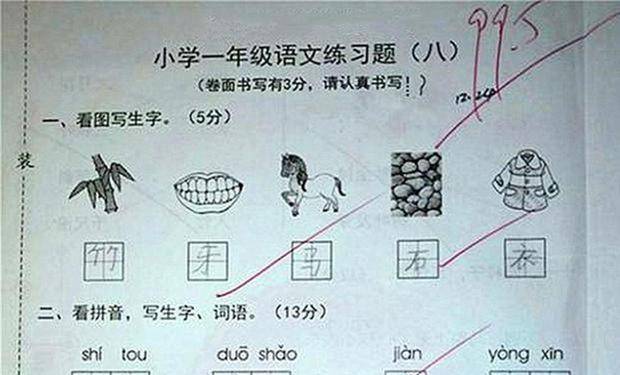 99.5
小学一年级语文练习题（八）
（卷面书写有3分，请认真书写！）
12.24
一、看图写生字。（5分）
装
竹 牙 马 衣
二、看拼音，写生字、词语。（13分）
shí tou duō shǎo jiàn yòng xīn